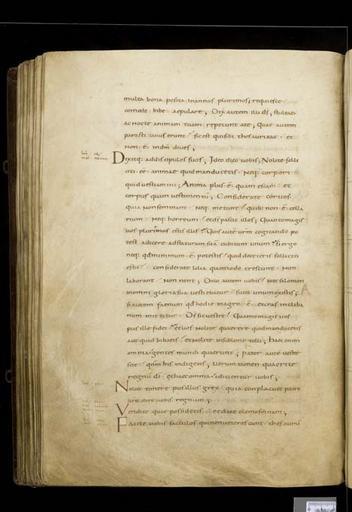 multa bona posita in annos plurimos; requiesce
comede bibe aepulare; Dix autem illi ds; stulte
ac nocte animam tuam repetunt a te; Quae autem
parasti cuius erunt? sic est qui sibi thesaurizat et
non e in dm dives;
Dixitq; ad discipulos suos; Ideo dico vobis; Nolite solli
citi ee animae quid manducetis neq; corpori
quid vestiamini; Anima plus e quam esca et
corpus quam vestimentum; Considerate corvos
quia non seminant neq; metunt quibus non e cella
rium neq; horreum et ds pascit illos; Quanto magis
vos pluris estis illis? Quis aute vrm cogitando po
test adicere ad staturam sua cubitum unum? Si ergo
neq; qd minimum e potestis quid de ceteris solliciti
estis considerate lilia quomodo crescunt non
laborant non nent; Dico autem vobis nec salomon
in omni gloria sua vestiebatur sicut unum ex istis;
Si autem faenum qd hodie in agro e et cras in cliba
num mittitur ds sic vestit quanto magis vos
pusillae fidei? et vos nolite quaerere quid manducetis
aut quid bibatis et nolite in sublime tolli; haec enim
omnia gentes mundi quaerunt; pater aute vester
scit qm his indigetis; Verum tamen quaerite
regnu di et haec omnia adicientur vobis;
Nolite timere pusillus grex quia conplacuit patri
vro dare vobis regnum;
Vendite quae possidetis et date elemosinam;
Facite vobis sacculos qui non veterescunt thesauru